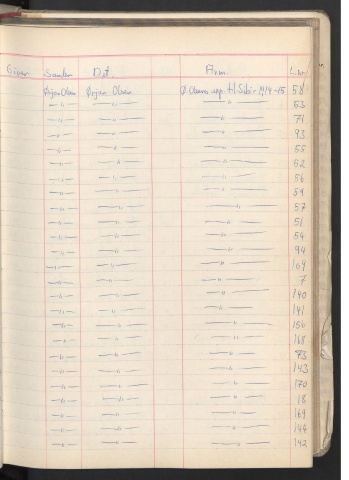 Giver Samler Det. Anm. L.nr
Ørjan Olsen Ørjan Olsen Ø. Olsens exp. til Sibir 1914-15 58
—"— —"— —"— 63
—"— —"— —"— 71
—"— —"— —"— 93
—"— —"— —"— 55
—"— —"— —"— 52
—"— —"— —"— 56
—"— —"— —"— 59
—"— —"— —"— 57
—"— —"— —"— 51
—"— —"— —"— 54
—"— —"— —"— 94
—"— —"— —"— 164
—"— —"— —"— 7
—"— —"— —"— 140
—"— —"— —"— 141
—"— —"— —"— 156
—"— —"— —"— 168
—"— —"— —"— 73
—"— —"— —"— 143
—"— —"— —"— 170
—"— —"— —"— 18
—"— —"— —"— 169
—"— —"— —"— 144
—"— —"— —"— 142